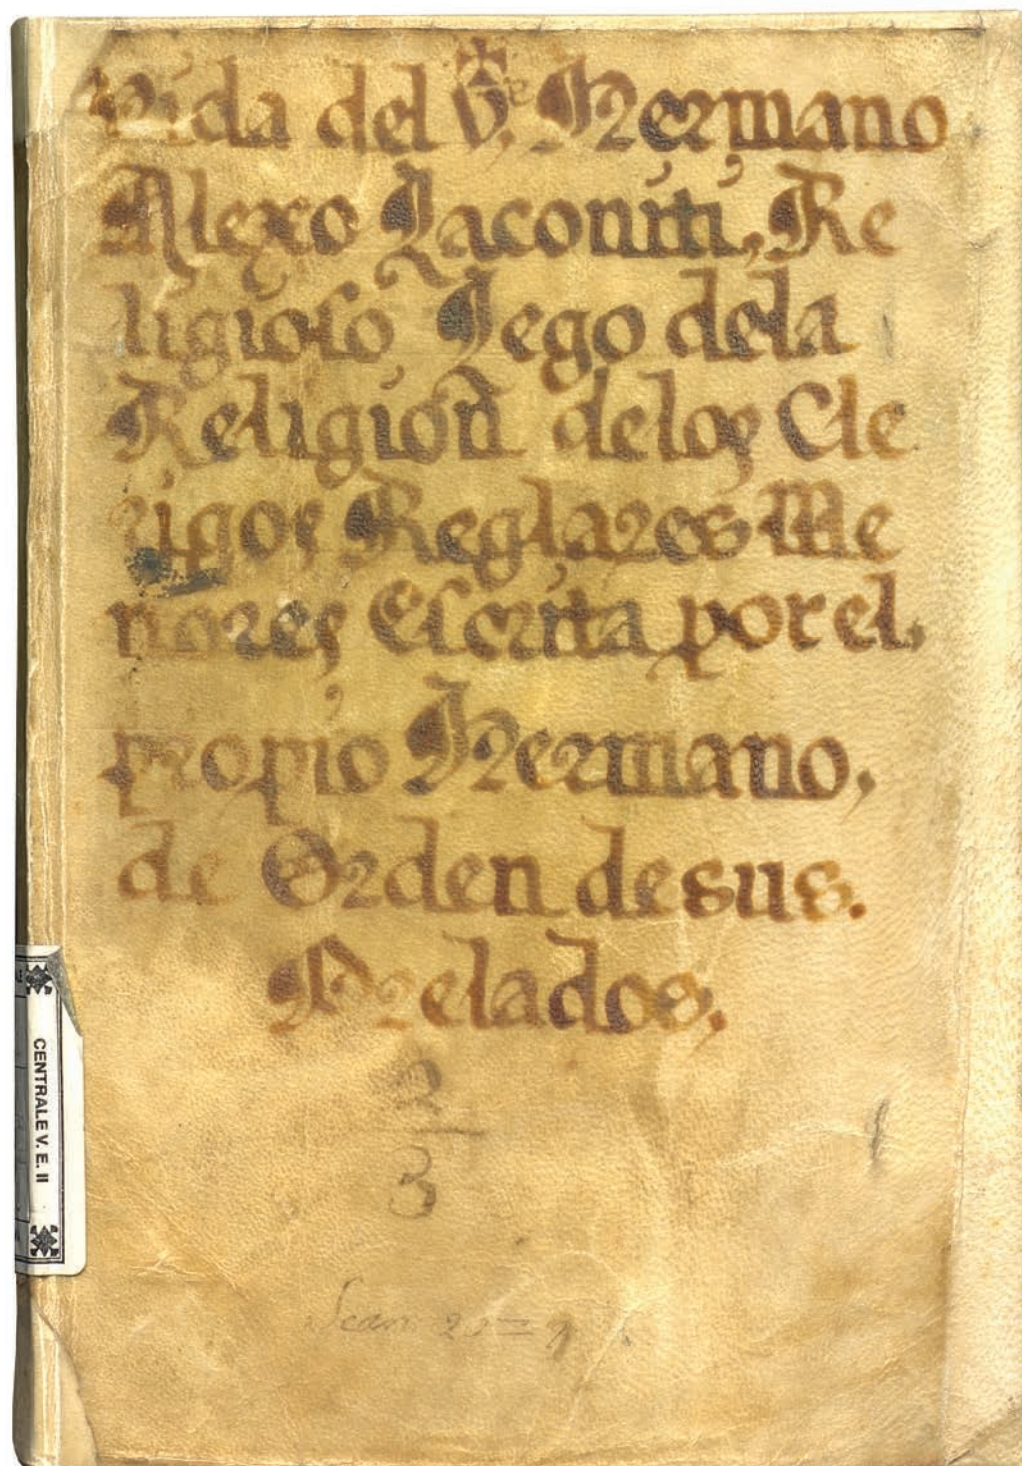 Vida del V.e Hermano
Alexo Iaconiti, Re
ligioso Lego dela
Religion delos Cle
rigos Reglares Me
nores Escrita por el
propio Hermano,
de Orden de sus.
Prelados.
2
3
CENTRALE V. E. II